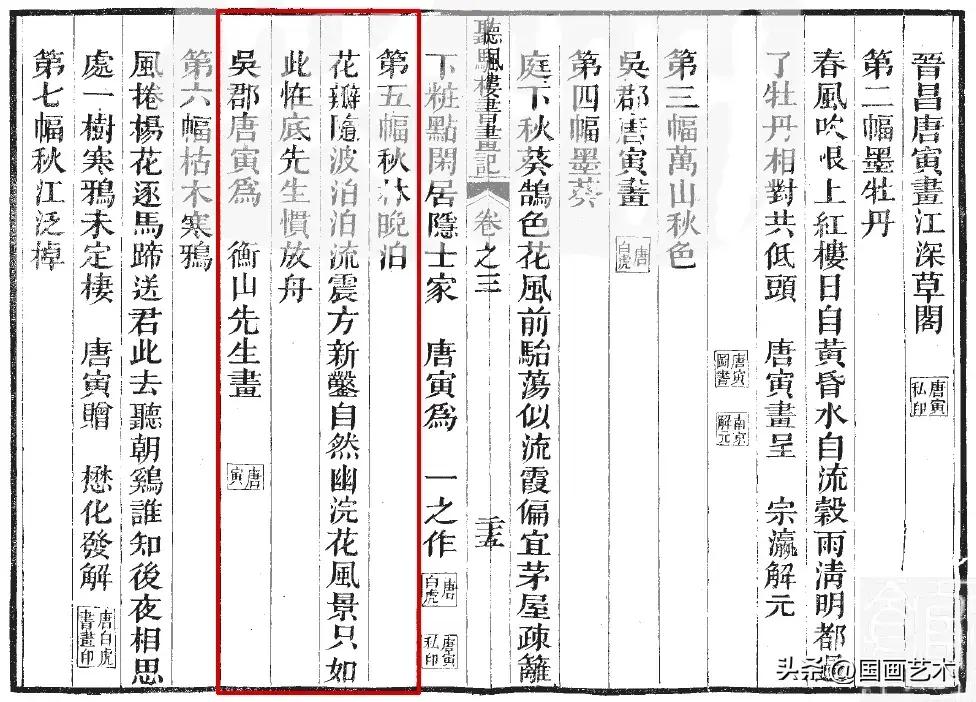 晉昌唐寅畫江深草閣 唐寅私印
第二幅墨牡丹
春風吹恨上紅樓日自黃昏水自流穀雨淸明都過
了牡丹相對共低頭 唐寅畫呈 宗瀛解元
唐寅圖書 南京解元
第三幅萬山秋色
吳郡唐寅畫 唐白虎
第四幅墨葵
庭下秋葵鵠色花風前駘蕩似流霞偏宜茅屋疎籬
聽颿樓書畫記 卷之三 二十五
下粧點閑居隱士家 唐寅爲 一之作 唐白虎 唐寅私印
第五幅秋林晚泊
花瓣隨波泊泊流震方新鑿自然幽浣花風景只如
此恠底先生慣放舟
吳郡唐寅爲 衡山先生畫 唐寅
第六幅枯木寒鴉
風捲楊花逐馬蹄送君此去聽朝鷄誰知後夜相思
處一樹寒鴉未定棲 唐寅贈 懋化發解 唐白虎書畫印
第七幅秋江泛棹
头条@国画艺术